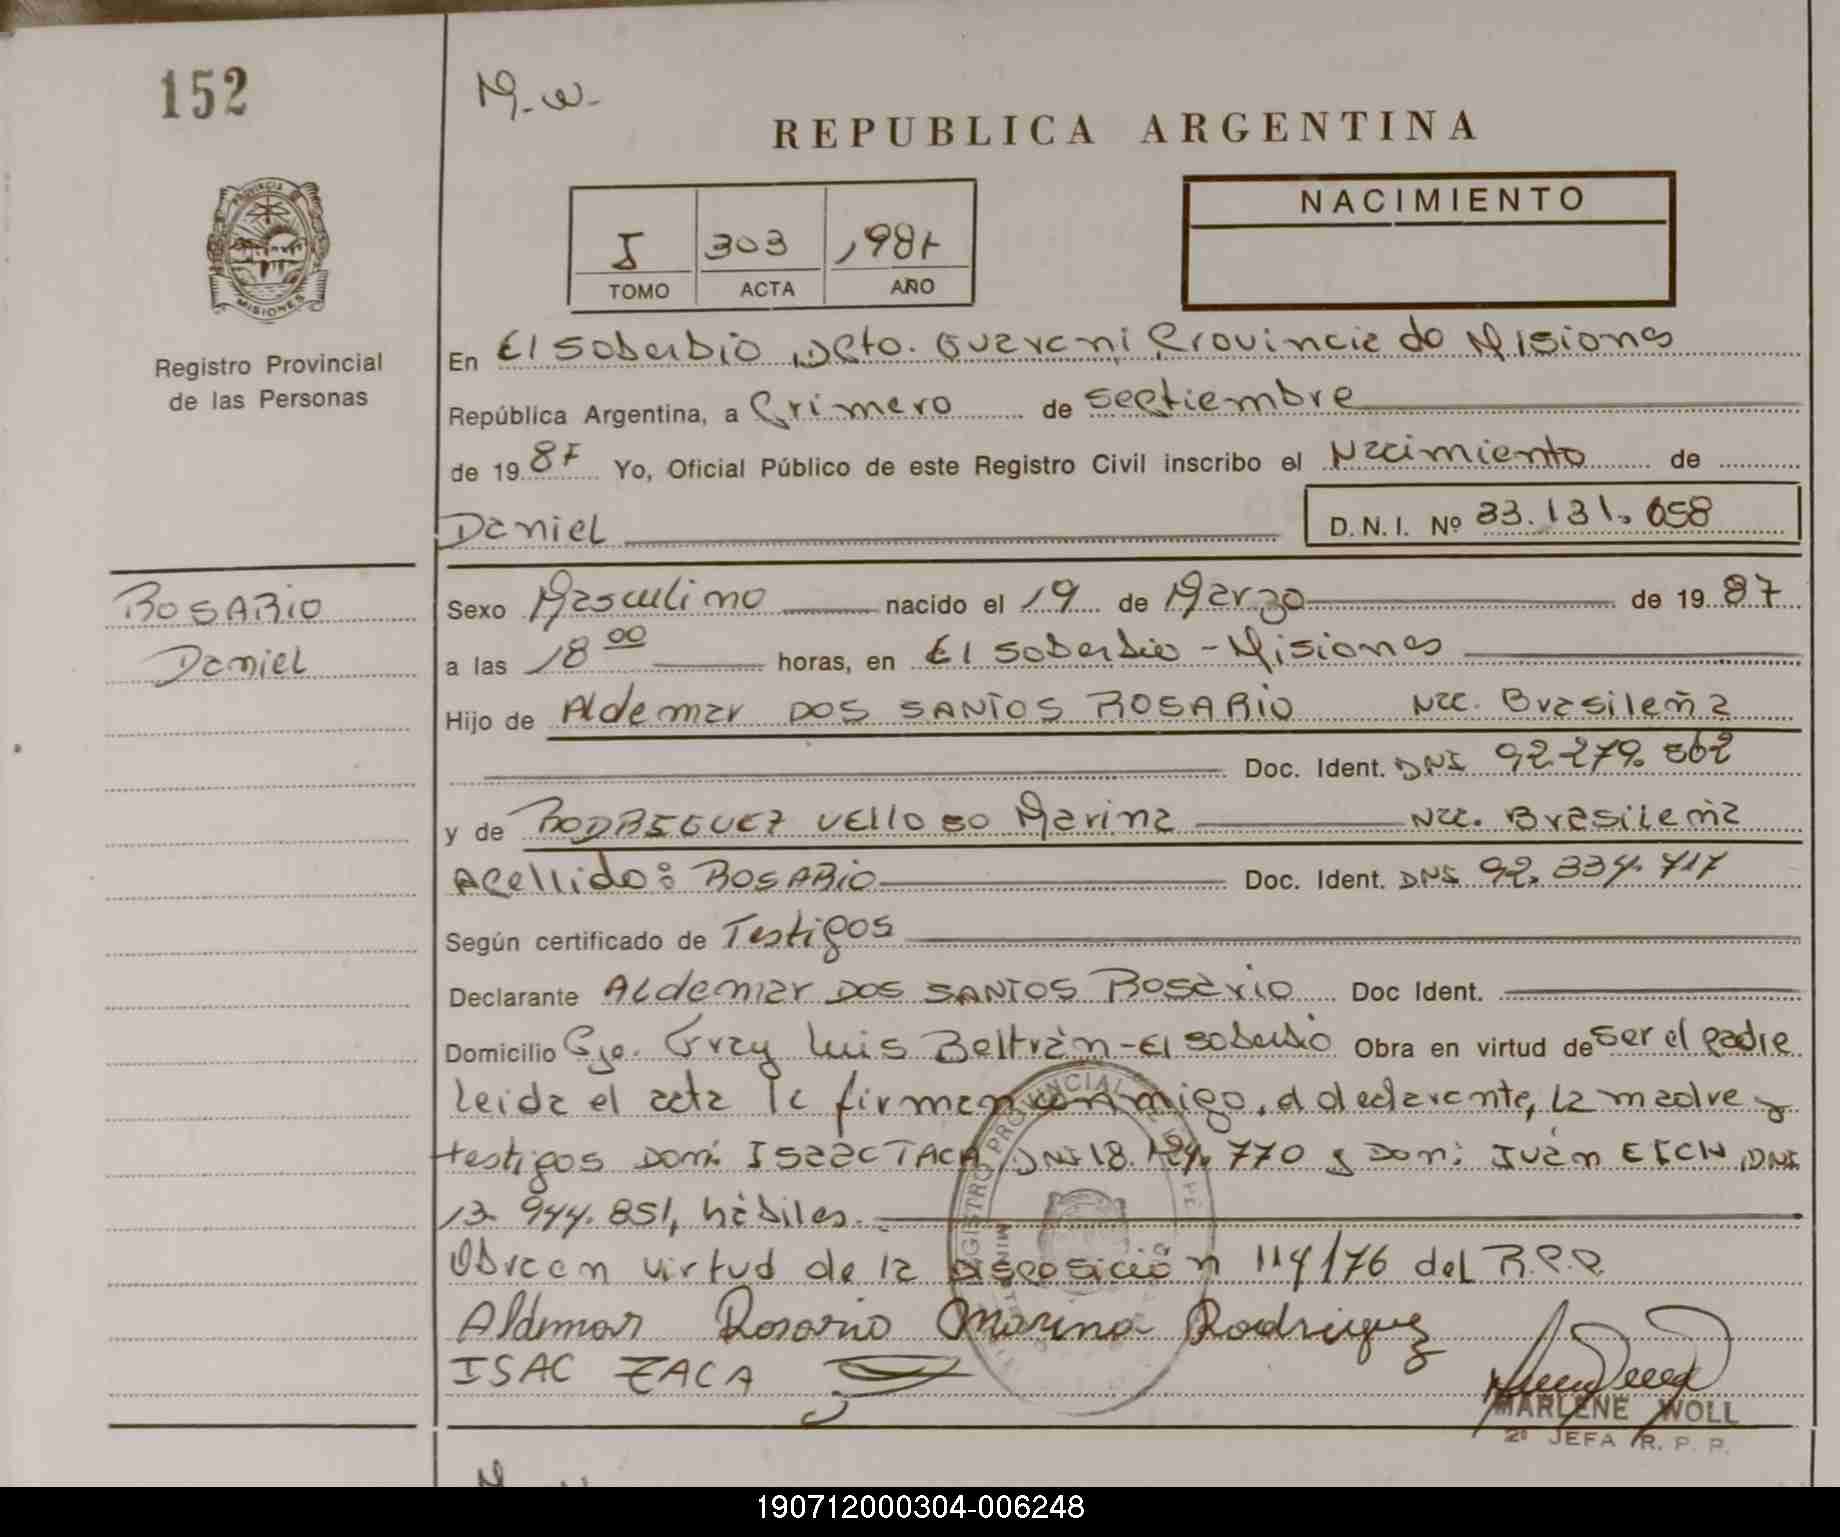 152
M.W.
REPUBLICA ARGENTINA
PROVINCIA
MISIONES
I 303 1987
TOMO ACTA AÑO
NACIMIENTO
Registro Provincial
de las Personas
En El Soberbio, Dpto. Guarani Provincia de Misiones
República Argentina, a Primero de Septiembre
de 1987 Yo, Oficial Público de este Registro Civil inscribo el Nacimiento de
Daniel D.N.I. Nº 33.131.658
ROSARIO
Daniel
Sexo Masculino nacido el 19 de Marzo de 1987
a las 18 00 horas, en El Soberbio - Misiones
Hijo de Aldemar DOS SANTOS ROSARIO Nac. Brasileña
Doc. Ident. DNI 92.279.562
y de RODRIGUEZ VELLOSO Marina Nac. Brasileña
Apellido: ROSARIO Doc. Ident. DNI 92.334.717
Según certificado de Testigos
Declarante Aldemar DOS SANTOS Rosario Doc Ident.
Domicilio Pje. Fray Luis Beltrán - El Soberbio Obra en virtud de Ser el padre
Leida el acta la firman conmigo, el declarante, la madre y
testigos Don: Isaac TACA, DNI 18. 770 y Don: Juán EICH, DNI
13.944.851, hábiles.
Obra en virtud de la Disposición 114/76 del R.P.P.
Aldemar Rosario Marina Rodriguez
ISAC ZACA
MARLENE WOLL
2ª JEFA R. P. P.
190712000304-006248